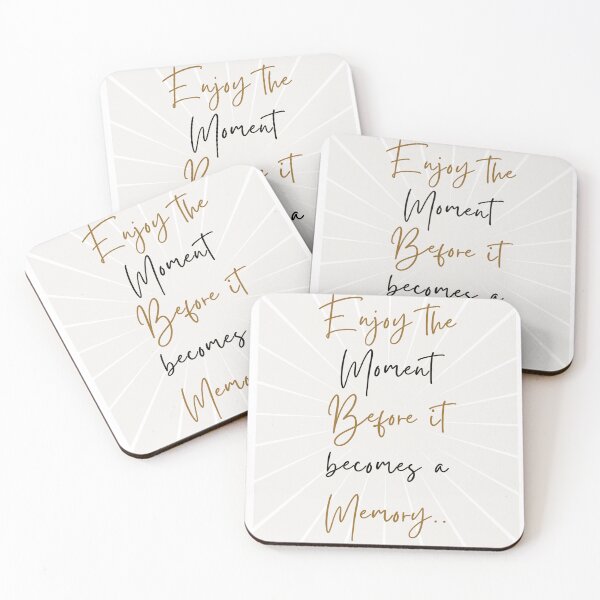 Enjoy the
Moment
Before it
Enjoy the
Moment
Before it
becomes a
Enjoy the
Moment
Before it
becomes
Enjoy the
Moment
Before it
becomes a
Memory..